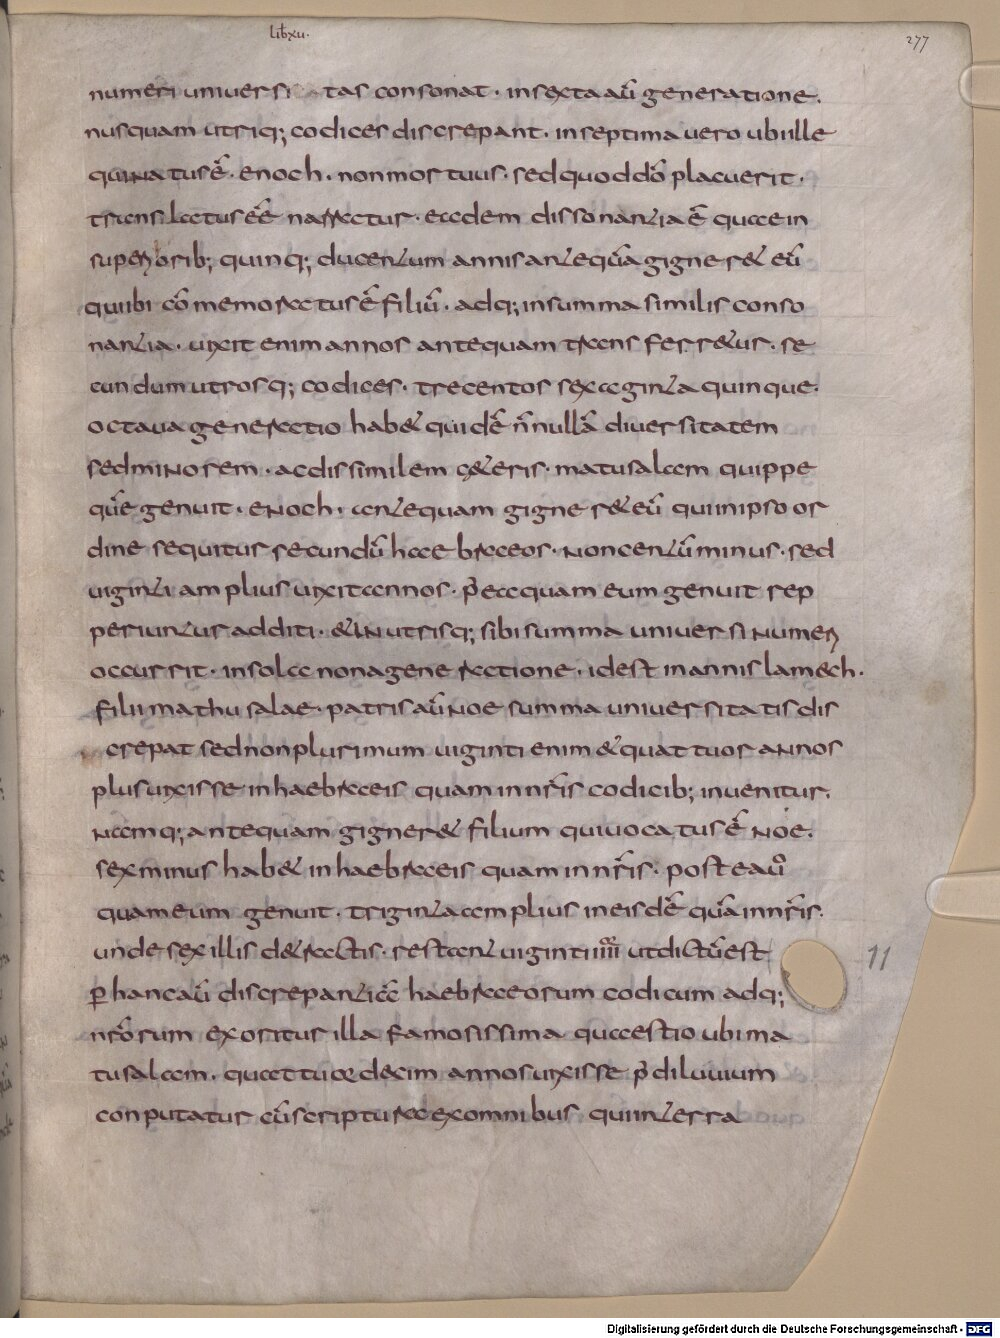 lib xu.
277
numeri uniuersitas consonat. in sexta aū generatione.
nusquam utriq; codices discrepant. in septima uero ubi ille
qui natus ē. enoch. non mortuus. sed quod dō placuerit.
translatus eē narratur. eadem dissonantia ē quae in
superiorib; quinq; ducentum annis antequā gigneret eū
qui ibi cōmemoratus ē filiū. adq; in summa similis conso
nantia. uixit enim annos antequam transferretur. se
cundum utrosq; codices. trecentos sexaginta quinque.
octaua generatio habet quidē nnullā diuersitatem
sed minorem. ac dissimilem ceteris. matusalam quippe
quē genuit. enoch. antequam gigneret eū qui in ipso or
dine sequitur secundū haebraeos. non centū minus. sed
uiginti amplius uixit annos. p̄ea quam eum genuit rep
periuntur additi. et in utrisq; sibi summa uniuersi numeri
occurrit. in sola nona generatione. id est in annis lamech.
filii mathusalae. patris aū noe summa uniuersitatis dis
crepat sed non plurimum uiginti enim et quattuor annos
plus uixisse in haebraeis quam in nr̄is codicib; inuenitur.
namq; antequam gigneret filium qui uocatus ē noe.
sex minus habet in haebraeis quam in nr̄is. postea uō
quam eum genuit. triginta amplius in eisdē quā in nr̄is.
unde sex illis detractis. restant uiginti iiii ut dictū est
p hanc aū discrepantiā haebraeorum codicum adq;
nr̄orum exoritur illa famosissima quaestio ubi ma
tusalam. quattuordecim annos uixisse p̄ diluuium
conputatur cū scriptura ex omnibus qui in terra
11
Digitalisierung gefördert durch die Deutsche Forschungsgemeinschaft - DFG